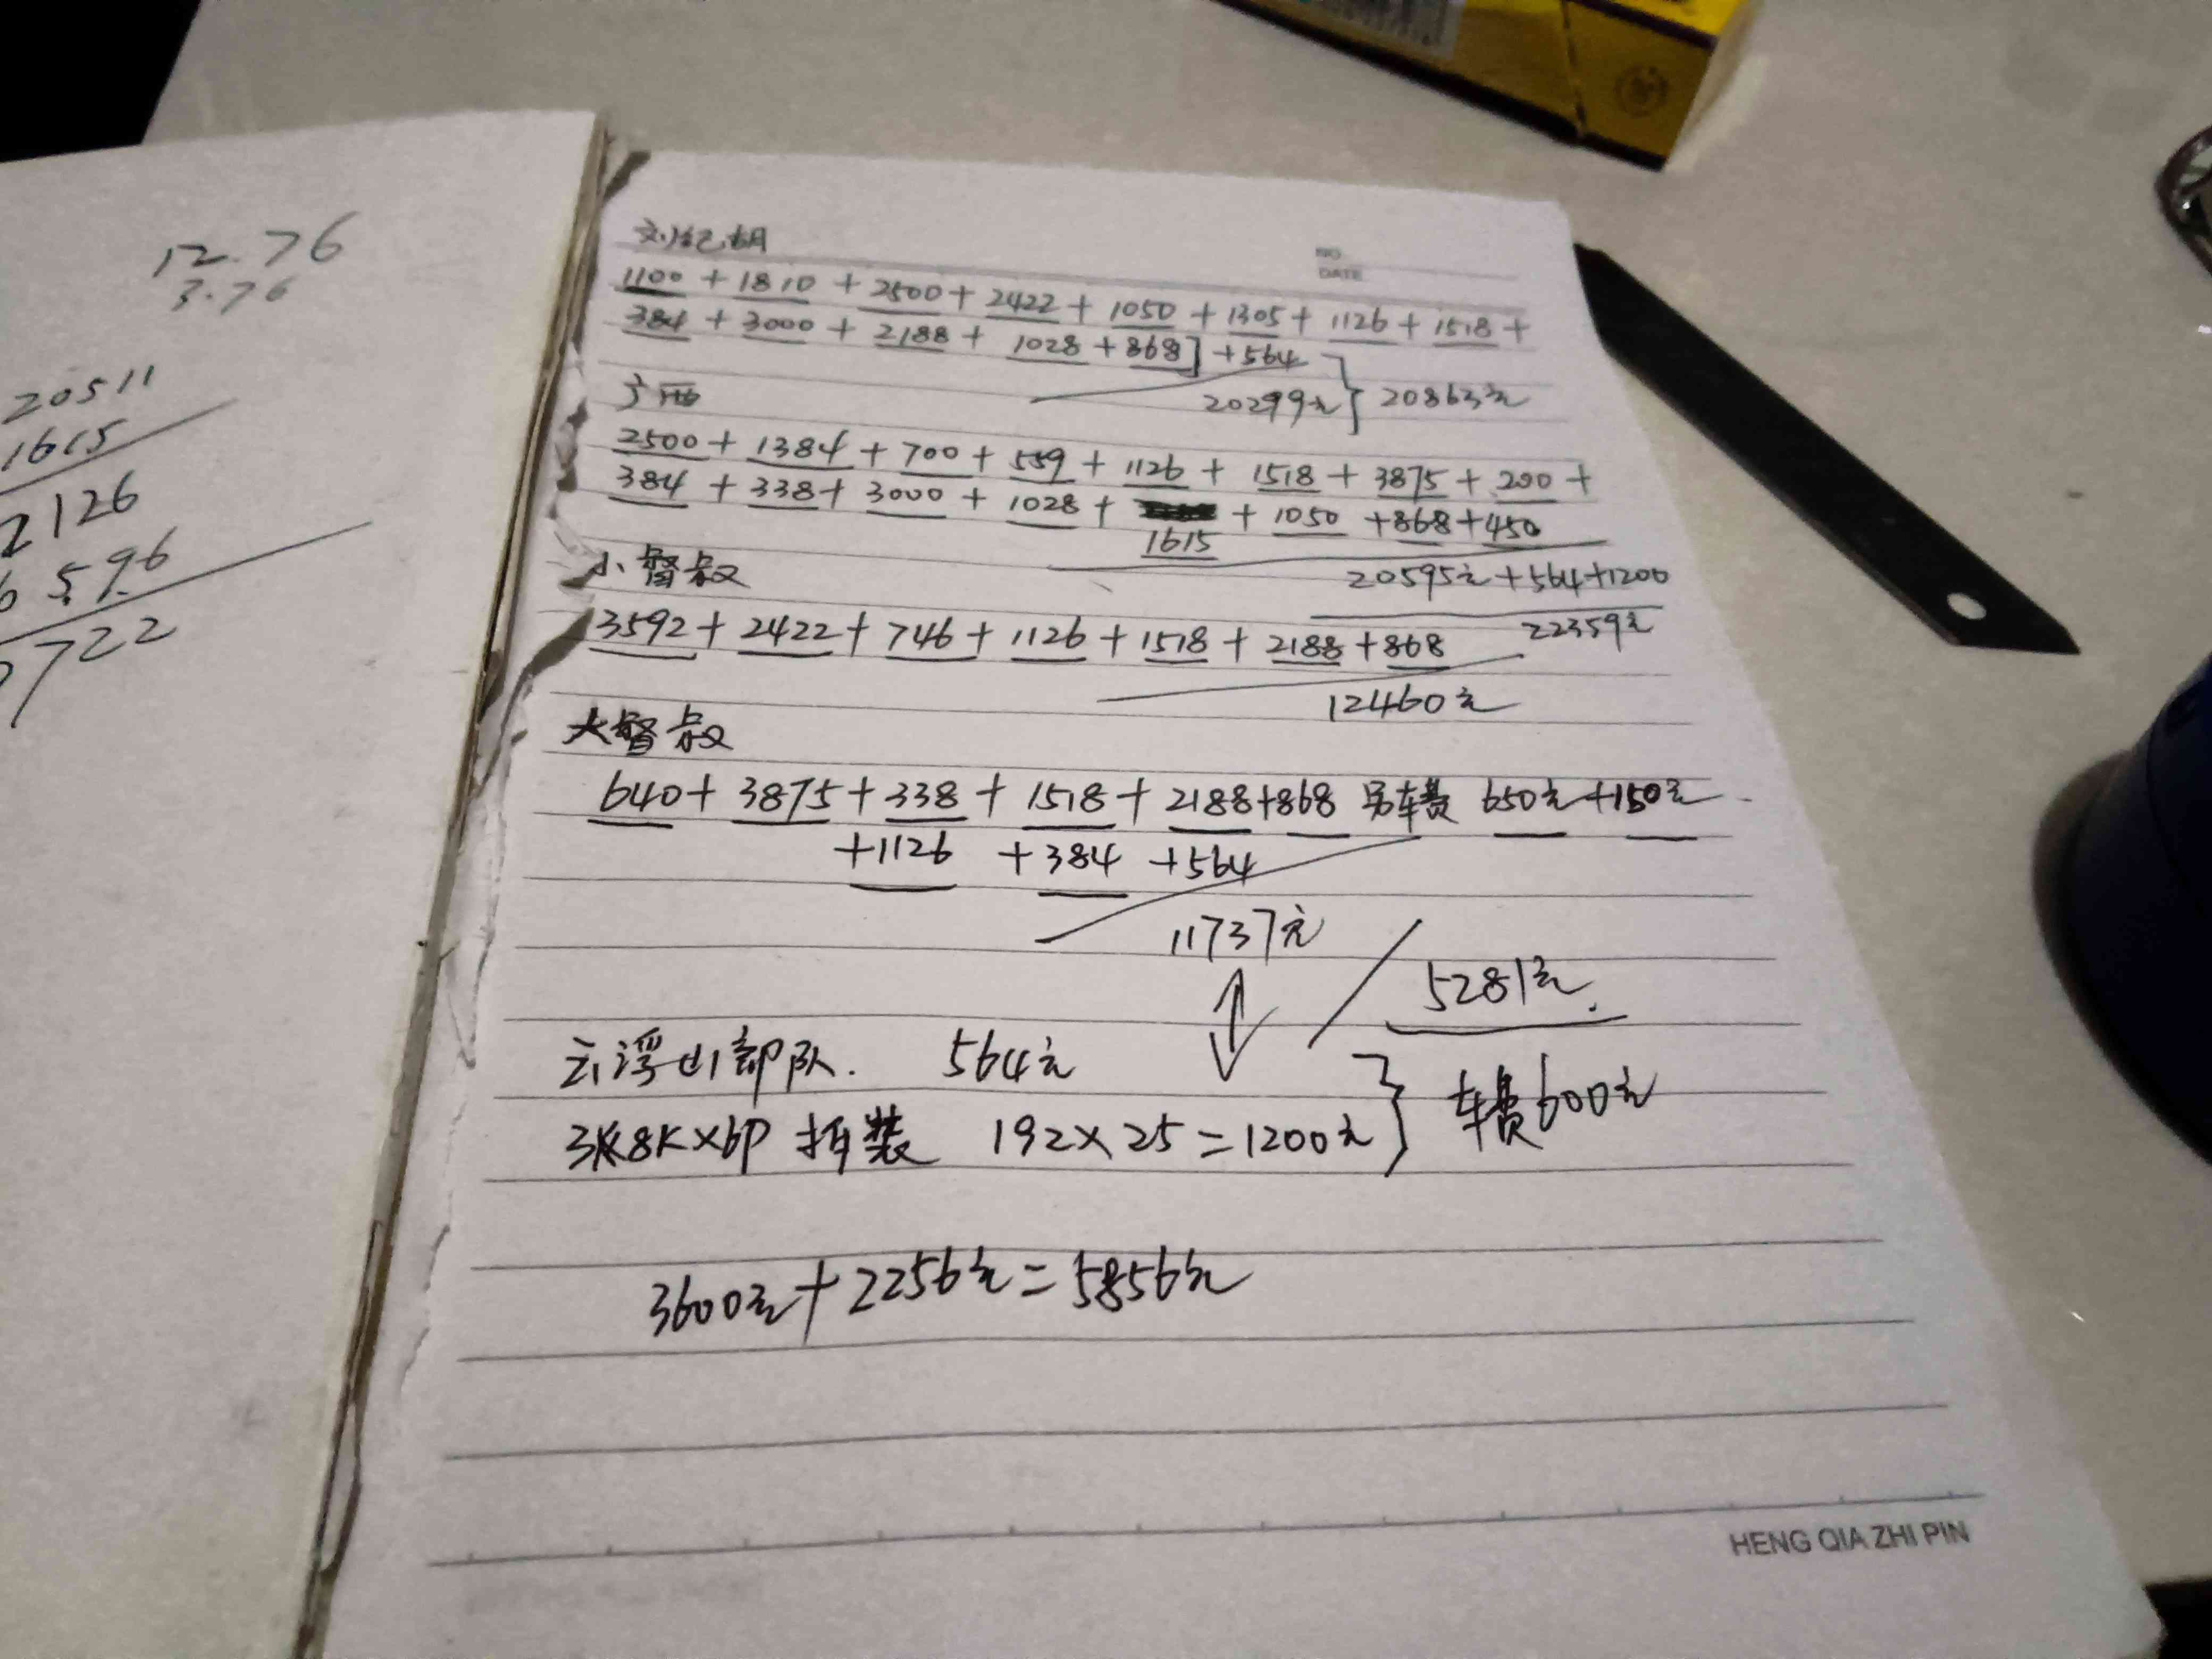 12.76
3.76
20511
1615
2126
5.96
722
NO.
DATE
1100 + 1810 + 2500 + 2422 + 1050 + 1305 + 1126 + 1518 +
384 + 3000 + 2188 + 1028 + 868] + 564
20299元 } 20863元
2500 + 1384 + 700 + 559 + 1126 + 1518 + 3875 + 200 +
384 + 338 + 3000 + 1028 + 1615 + 1050 + 868 + 450
20595元 + 564 + 1200
22359元
小督叔
3592 + 2422 + 746 + 1126 + 1518 + 2188 + 868
12460元
大督叔
640 + 3875 + 338 + 1518 + 2188 + 868 吊车费 650元 + 150元
+ 1126 + 384 + 564
11737元
5281元
云浮山部队. 564元
8K×6P 拆装 192×25=1200元 } 车费600元
3600元+2256元=5856元
HENG QIA ZHI PIN